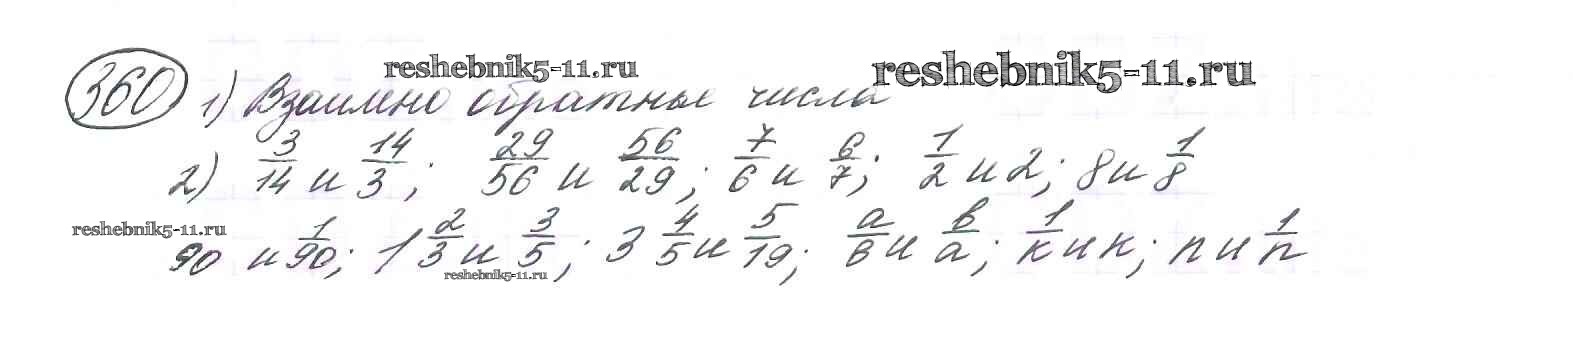 reshebnik5-11.ru reshebnik5-11.ru
360 1) Взаимно обратные числа
2) 3/14 и 14/3; 29/56 и 56/29; 7/6 и 6/7; 1/2 и 2; 8 и 1/8
reshebnik5-11.ru
90 и 1/90; 1 2/3 и 3/5; 3 4/5 и 5/19; a/в и в/a; 1/к и к; n и 1/n
reshebnik5-11.ru